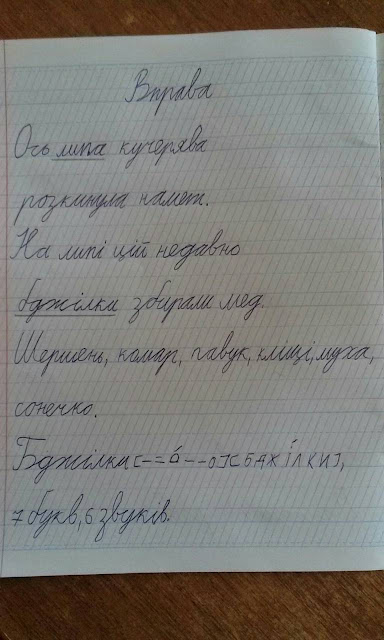 Вправа
Ось липа кучерява
розкинула намет.
На липі цій недавно
бджілки збирали мед.
Шершень, комар, павук, муха,
сонечко.
Бджілки [–=о́––о][бджі́лки],
7 букв, 6 звуків.